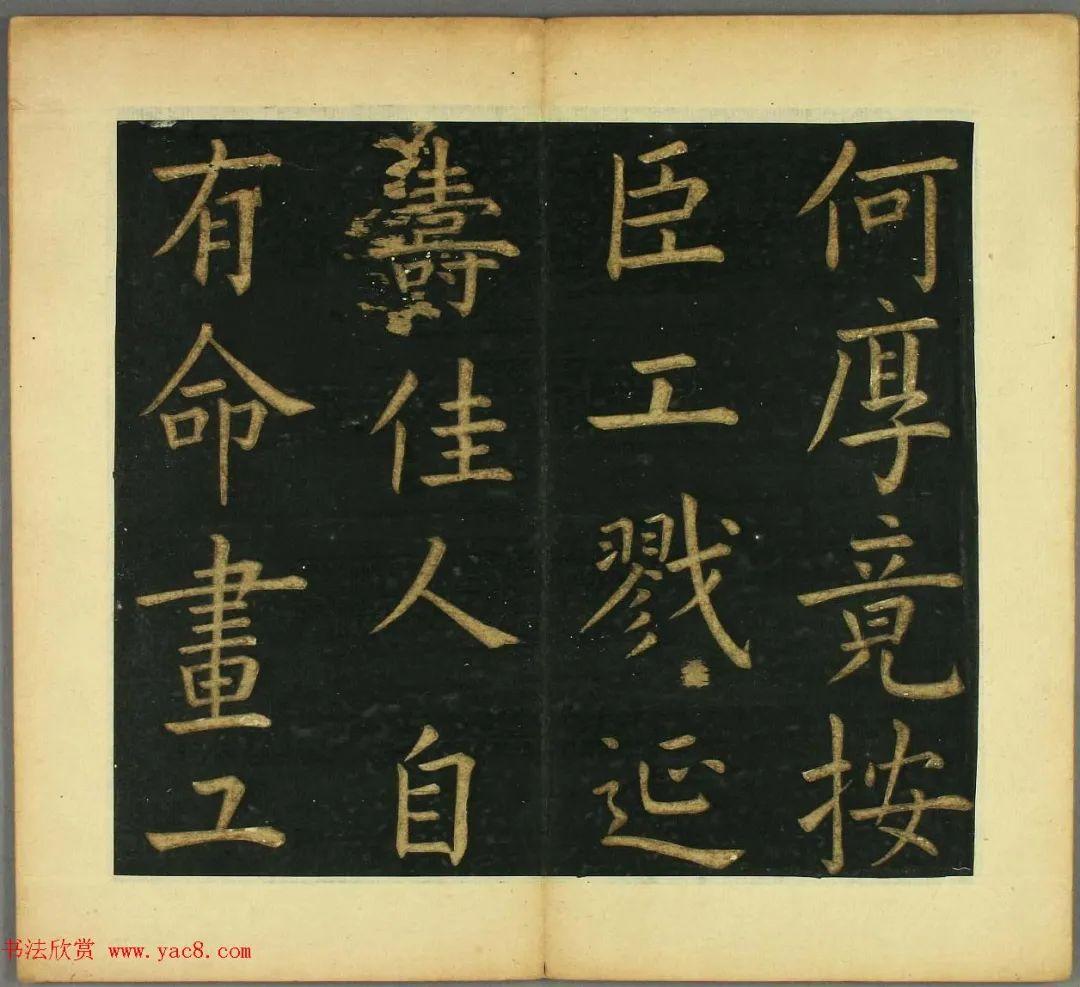 何厚竟按
臣工戮延
壽佳人自
有命畫工
书法欣赏 www.yac8.com